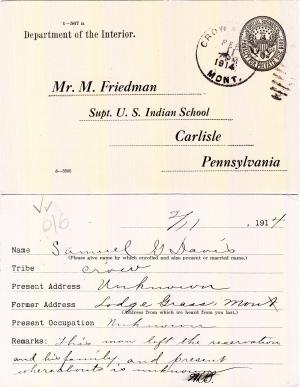 1-567 a
Department of the Interior.
CROW
FEB
1914
MONT.
Mr. M. Friedman
Supt. U. S. Indian School
Carlisle
Pennsylvania
616
2/1 , 1914
Name Samuel G Davis
(Please give name by which enrolled and also present or married name.)
Tribe Crow
Present Address Unknown
Former Address Lodge Grass, Mont
(Address from which we heard from you last.)
Present Occupation Unknown
Remarks: This man left the reservation
and his family and present
whereabouts is unknown